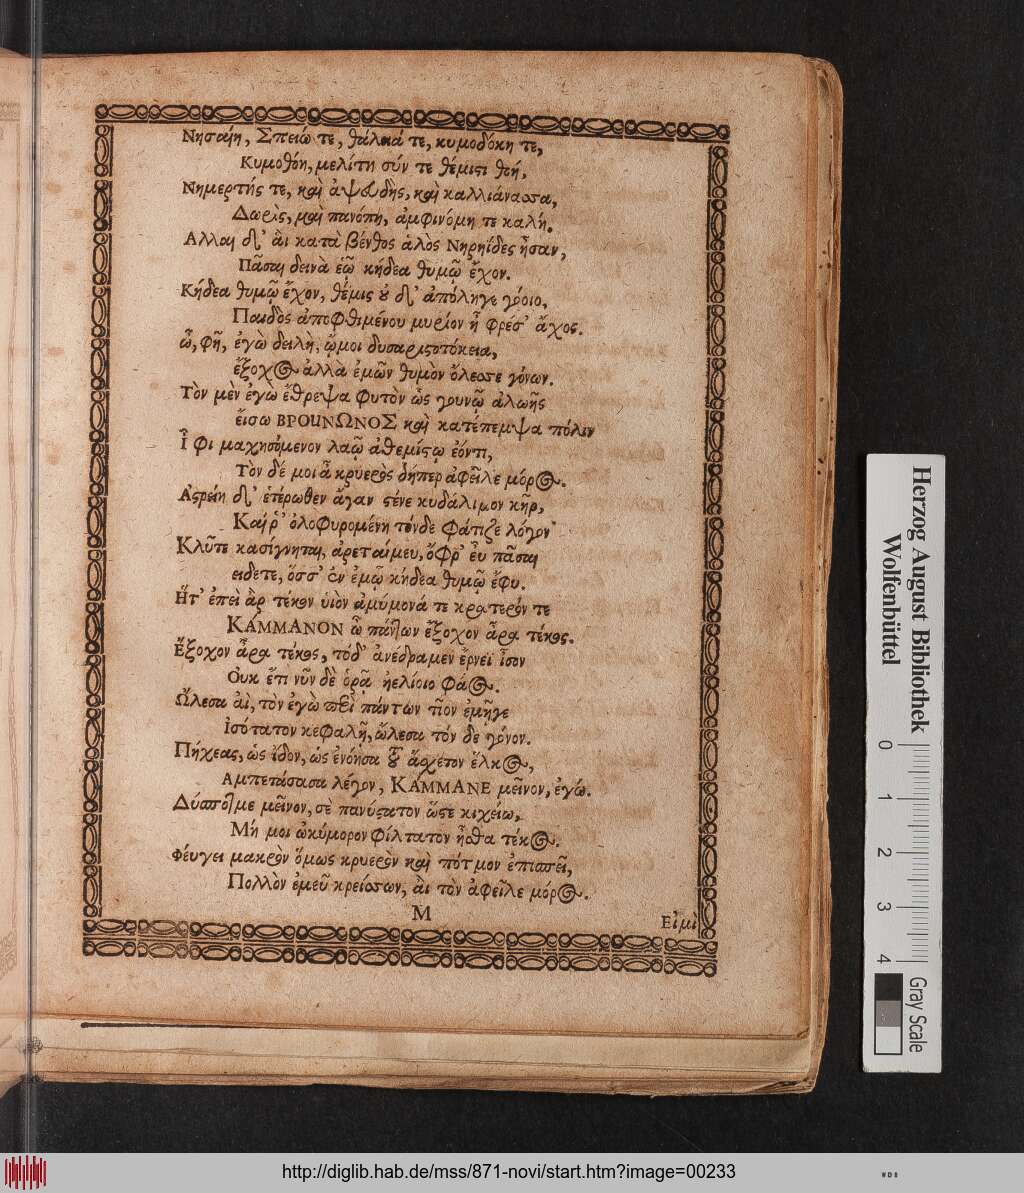 Νησαίη, Σπειώ τε, θάλειά τε, κυμοδόκη τε,
Κυμοθόη, μελίτη σύν τε θέμιςι θοή,
Νημερτής τε, καὶ ἀψευδὴς, καὶ καλλιάνασσα,
Δωρὶς, καὶ πανόπη, ἀμφινόμη τε καλή.
Αλλαι δ' αἳ κατὰ βένθος ἁλὸς Νηρηίδες ἦσαν,
Πᾶσαι δεινὰ ἑῷ κήδεα θυμῷ ἔχον.
Κήδεα θυμῷ ἔχον, θέμις ȣ δ' ἀπόληγε γόοιο,
Παιδὸς ἀποφθιμένου μυρίον ᾗ φρέσ' ἄχος.
ὦ, φῆ, ἐγὼ δειλὴ, ᾤμοι δυσαριςοτόκεια,
ἔξοχος ἀλλὰ ἐμῶν θυμὸν ὄλεσσε γόνων.
Τὸν μὲν ἐγὼ ἔθρεψα φυτὸν ὡς γουνῷ ἀλωῆς
ἔισω ΒΡΟUΝΩΝΟΣ καὶ κατέπεμψα πόλιν
Ἶ φι μαχησόμενον λαῷ ἀθεμίςῳ ἐόντι,
Τὸν δέ μοι ἆ κρυερὸς δήπερ ἀφεῖλε μόρος.
Αςρείη δ' ἑτέρωθεν ἄγαν ςένε κυδάλιμον κῆρ,
Καί ῥ' ὀλοφυρομένη τόνδε φάτιζε λόγον
Κλῦτε κασίγνηται, ἀρεταίμευ, ὄφρ' εὖ πᾶσαι
ειδετε, ὅσσ' ἐν ἐμῷ κήδεα θυμῷ ἔφυ.
Ητ' ἐπεὶ ἂρ τέκον ὑιὸν ἀμύμονά τε κρατερόν τε
ΚΑΜΜΑΝΟΝ ὦ πάντων ἔξοχον ἆρα τέκος.
Ἔξοχον ἆρα τέκος, τόδ' ἀνέδραμεν ἔρνεϊ ἶσον
Ουκ ἔτι νῦν δὲ ὁρᾷ ἠελίοιο φάος.
Ὤλεσα ἀὶ, τὸν ἐγὼ περὶ πάντων τῖον ἐμῆγε
Ἰσότατον κεφαλῆ, ὤλεσα τὸν δε γόνον.
Πήχεας, ὡς ἴδον, ὡς ἐνόησα ἄσχετον ἕλκος,
Αμπετάσασα λέγον, ΚΑΜΜΑΝΕ μεῖνον, ἐγώ.
Δύσποτμε μεῖνον, σὲ πανύςατον ὥςε κιχείω,
Μή μοι ὠκύμορον φίλτατον ἦσθα τέκος.
Φέυγει μακρὸν ὅμως κρυερὸν καὶ πότμον ἐπισπεῖ,
Πολλὸν ἐμεῦ κρείσσων, ἂι τὸν ἀφεῖλε μόρος.
M
Εἰμὶ
Herzog August Bibliothek
Wolfenbüttel
0 1 2 3 4
Gray Scale
http://diglib.hab.de/mss/871-novi/start.htm?image=00233
WDB